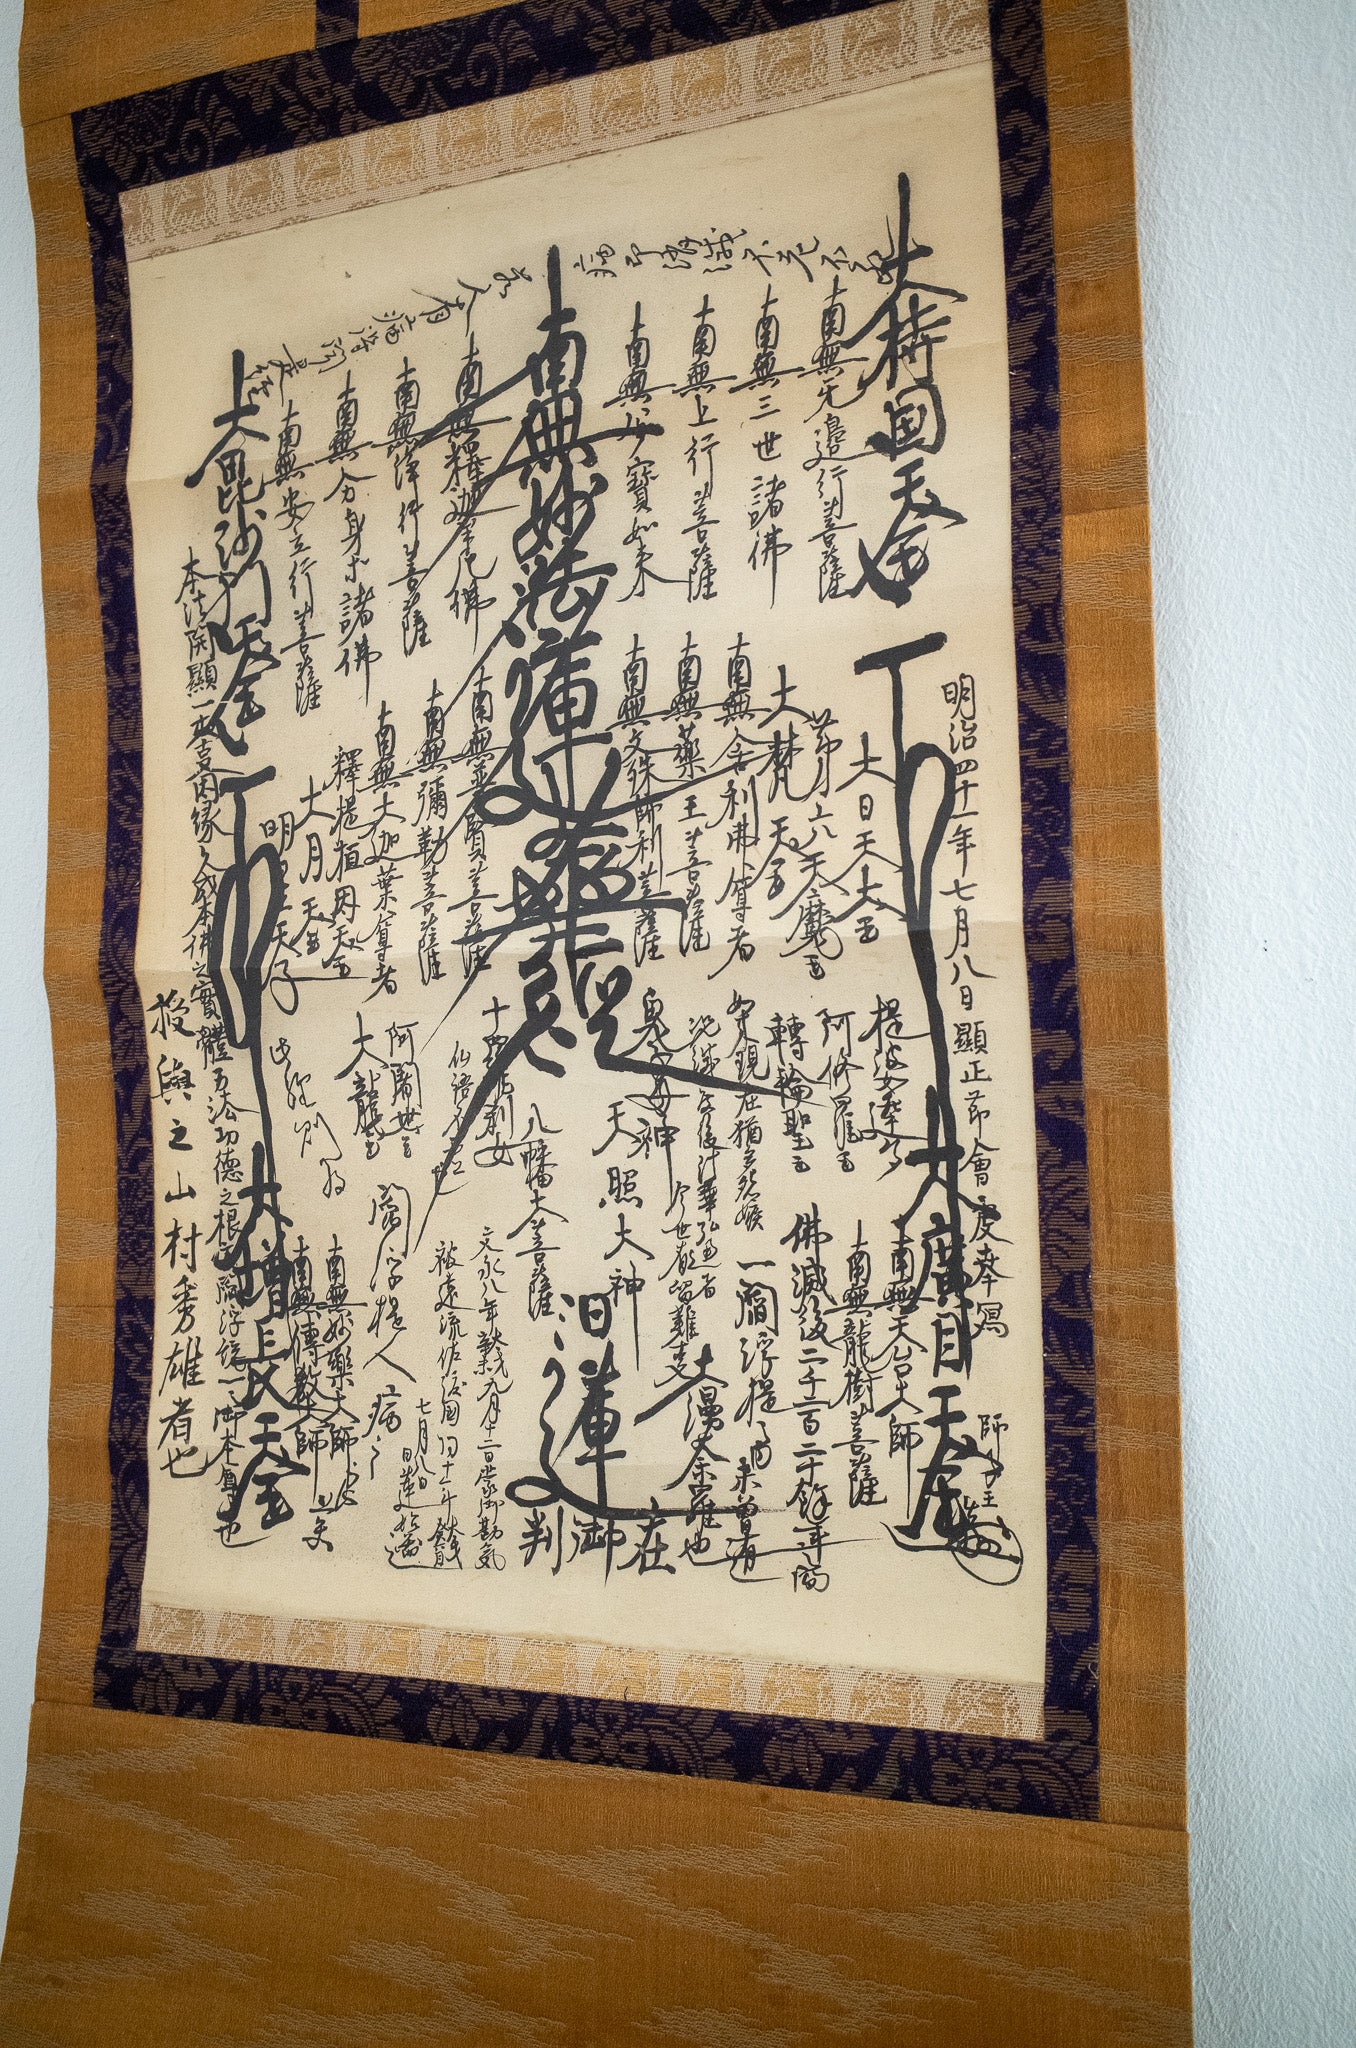 大持国天王
南無無邊行菩薩
南無三世諸佛
南無上行菩薩
南無多寶如来
南無妙法蓮華経
南無釋迦牟尼佛
南無浄行菩薩
南無分身等諸佛
南無安立行菩薩
大毘沙門天王
若人有病得聞是経
病即消滅不老不死
大日天大王
第六天魔王
大梵天王
南無舎利弗尊者
南無薬王菩薩
南無文殊師利菩薩
南無普賢菩薩
南無彌勒菩薩
南無大迦葉尊者
釋提桓因天王
大月天王
明星天子
提婆達多
阿修羅王
轉輪聖王
鬼子母神
十羅刹女
阿闍世王
大龍王
明治四十一年七月八日顯正節會慶奉寫
大廣目天王
南無天台大師
南無龍樹菩薩
佛滅後二千二百二十餘年間
一閻浮提之内未曾有
大漫荼羅也
如来現在猶多怨嫉
況滅度後
天照大神
八幡大菩薩
日蓮
在御判
文永八年
九月十二日蒙御勘気
被遠流佐渡國
七月八日
日蓮始圖之
閻浮提人病之
南無妙樂大師
南無傳教大師
大増長天王
本法開顯
因縁久成本佛之實體
法功徳之根
御本尊也
授與之山村秀雄者也